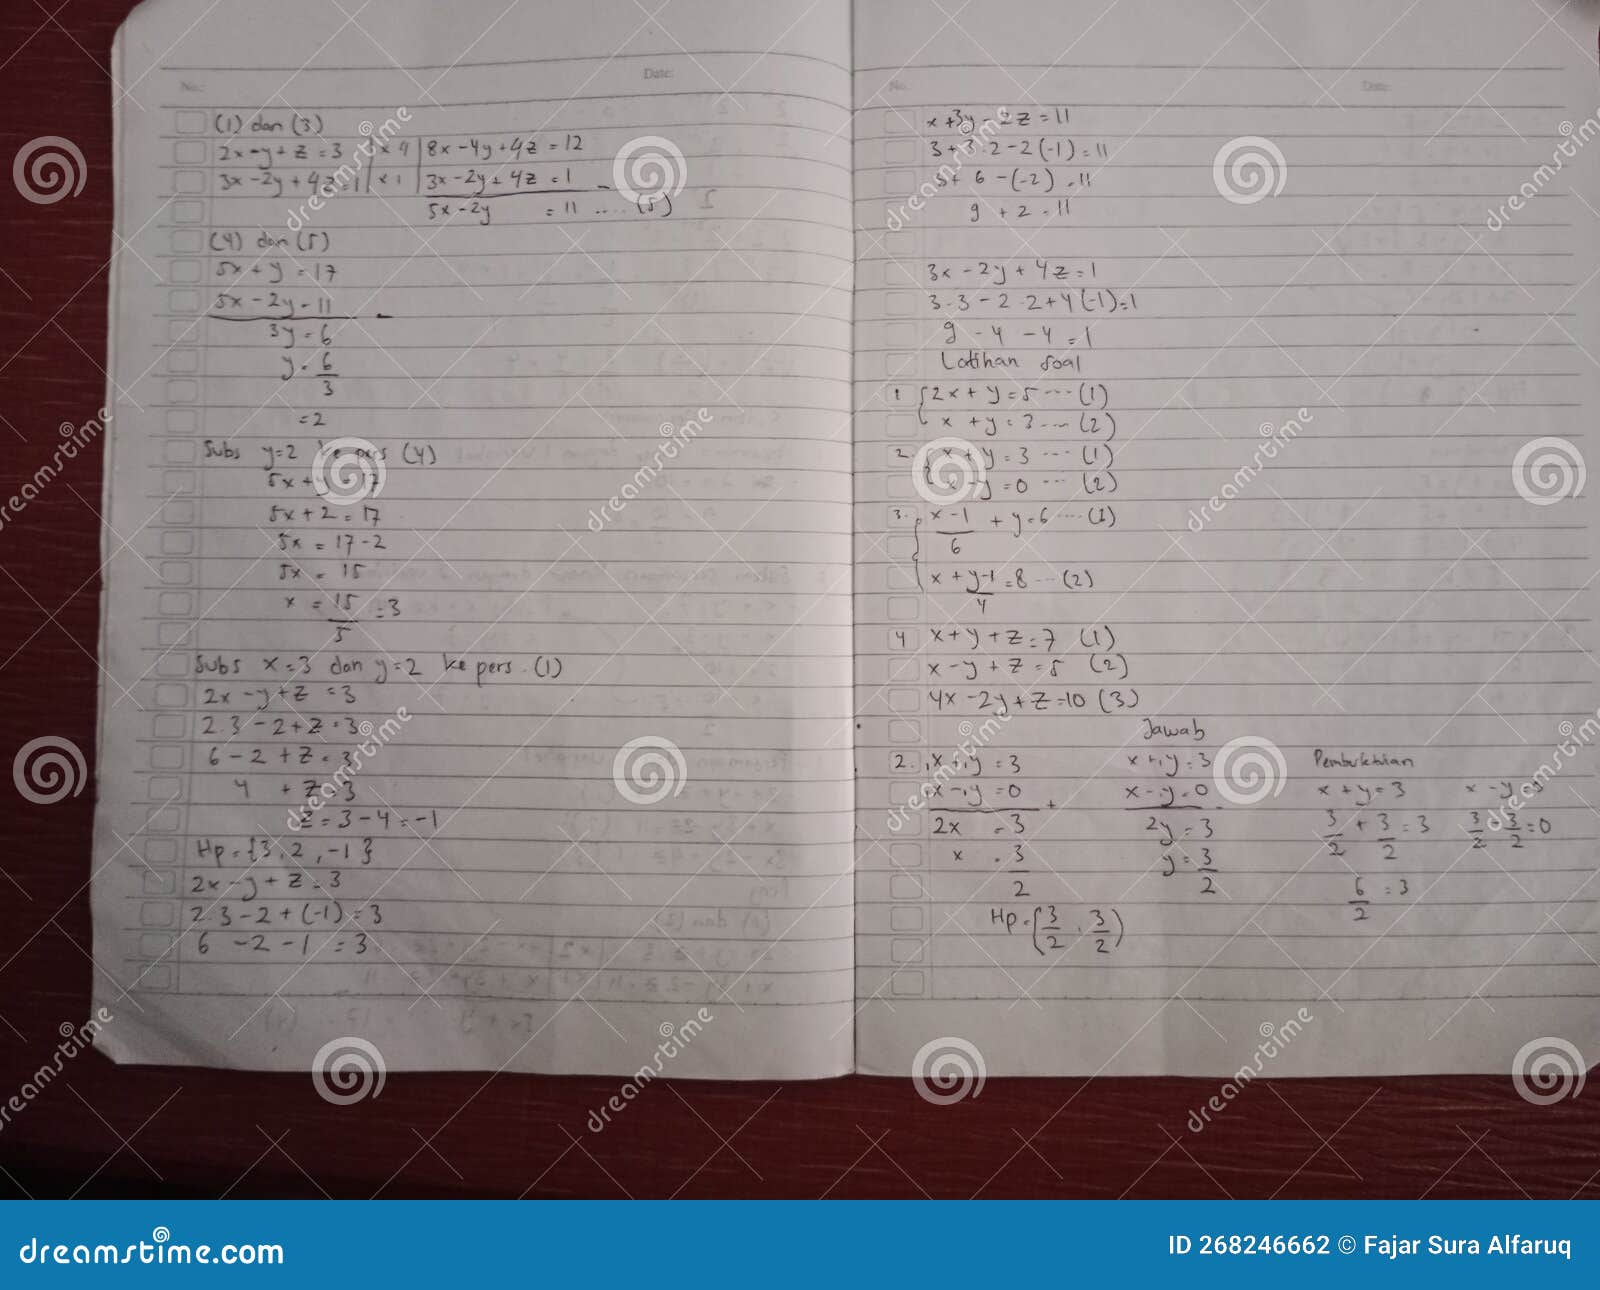 No.:
Date:
(1) dan (3)
2x - y + z = 3 | x 4 | 8x - 4y + 4z = 12
3x - 2y + 4z = 1 | x 1 | 3x - 2y + 4z = 1 -
5x - 2y = 11 .... (5)
(4) dan (5)
5x + y = 17
5x - 2y = 11 -
3y = 6
y = 6/3
= 2
Subs y=2 ke pers (4)
5x + y = 17
5x + 2 = 17
5x = 17 - 2
5x = 15
x = 15/5 = 3
Subs x=3 dan y=2 ke pers. (1)
2x - y + z = 3
2.3 - 2 + z = 3
6 - 2 + z = 3
4 + z = 3
z = 3 - 4 = -1
Hp = {3, 2, -1}
2x - y + z = 3
2.3 - 2 + (-1) = 3
6 - 2 - 1 = 3
No.
Date:
x + 3y - 2z = 11
3 + 3.2 - 2(-1) = 11
3 + 6 - (-2) = 11
9 + 2 = 11
3x - 2y + 4z = 1
3.3 - 2.2 + 4(-1) = 1
9 - 4 - 4 = 1
Latihan soal
1. { 2x + y = 5 .... (1)
x + y = 3 .... (2)
2. { x + y = 3 .... (1)
x - y = 0 .... (2)
3. { x-1/6 + y = 6 .... (1)
x + y-1/4 = 8 ... (2)
4 x + y + z = 7 (1)
x - y + z = 5 (2)
4x - 2y + z = 10 (3)
Jawab
2. x + y = 3 x + y = 3 Pembuktian
x - y = 0 + x - y = 0 - x + y = 3 x - y = 0
2x = 3 2y = 3 3/2 + 3/2 = 3 3/2 - 3/2 = 0
x = 3/2 y = 3/2 6/2 = 3
Hp = {3/2, 3/2}
dreamstime.com
ID 268246662 © Fajar Sura Alfaruq